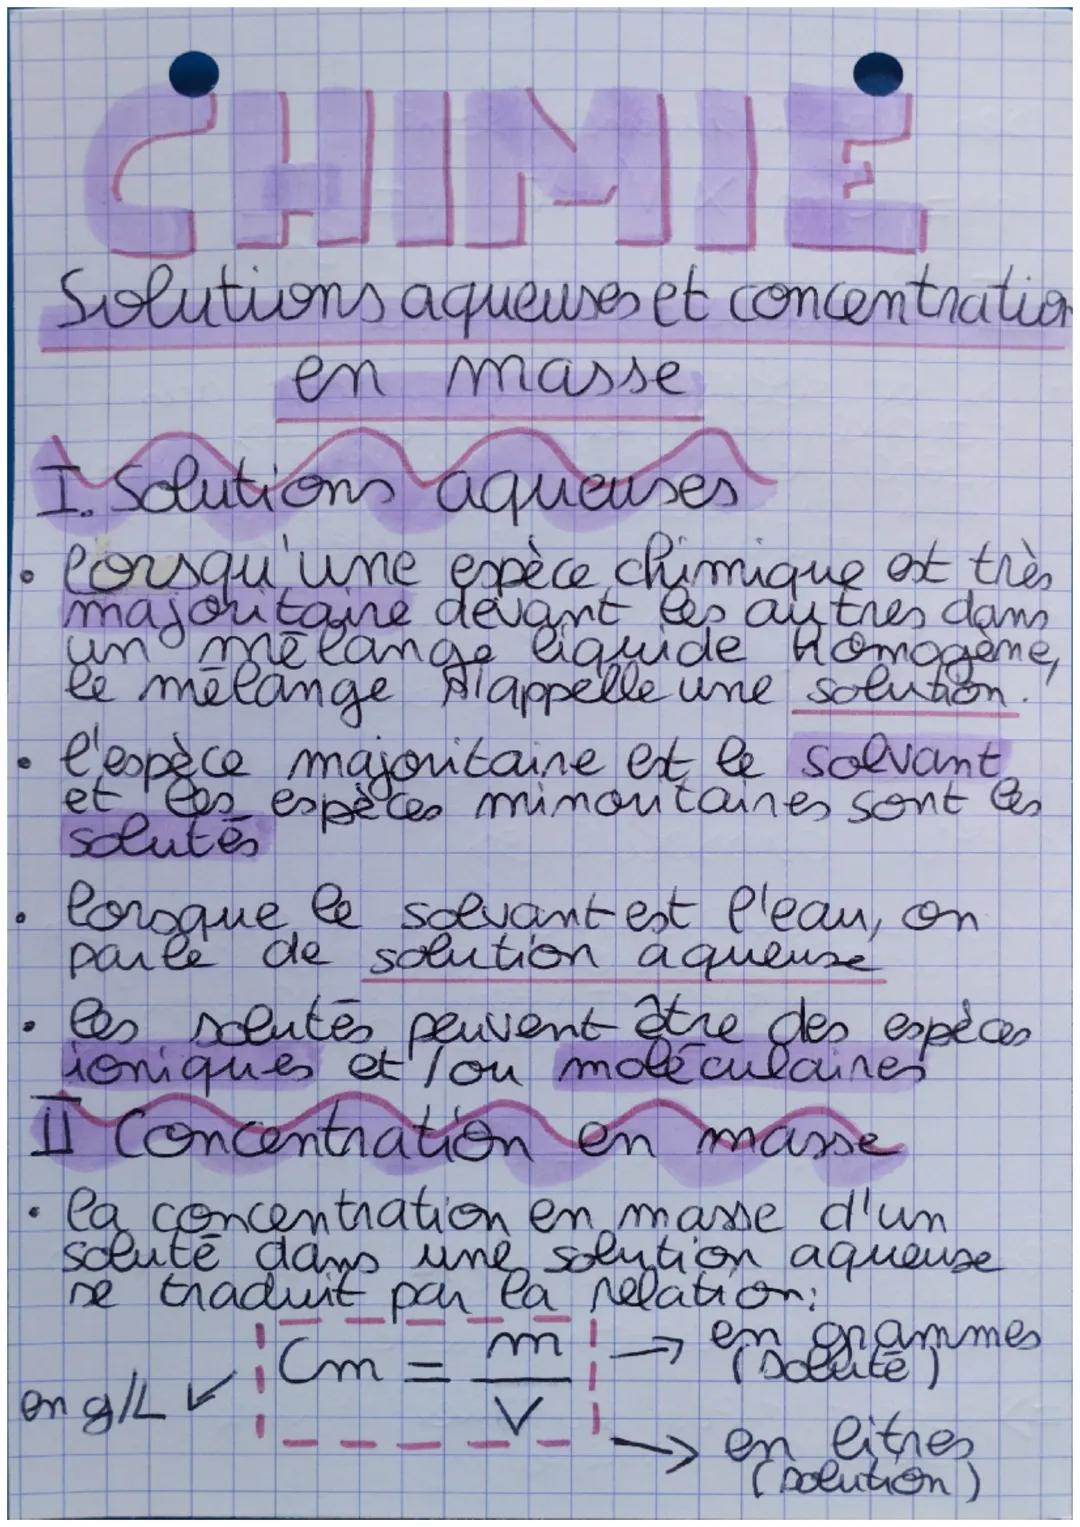 CHIMIE
Solutions aqueuses et concentration
en masse
I. Solutions aqueuses
• lorsqu'une espèce chimique est très
majoritaire devant les autres dans
un mélange liquide homogène,
le mélange s'appelle une solution.
• l'espèce majoritaire est le solvant
et les espèces minoritaires sont les
solutés
• lorsque le solvant est l'eau, on
parle de solution aqueuse
• les solutés peuvent être des espèces
ioniques et/ou moléculaires
II Concentration en masse
• la concentration en masse d'un
soluté dans une solution aqueuse
se traduit par la relation:
en g/L ↙ Cm = m/V → en grammes
(soluté)
→ en litres
(solution)